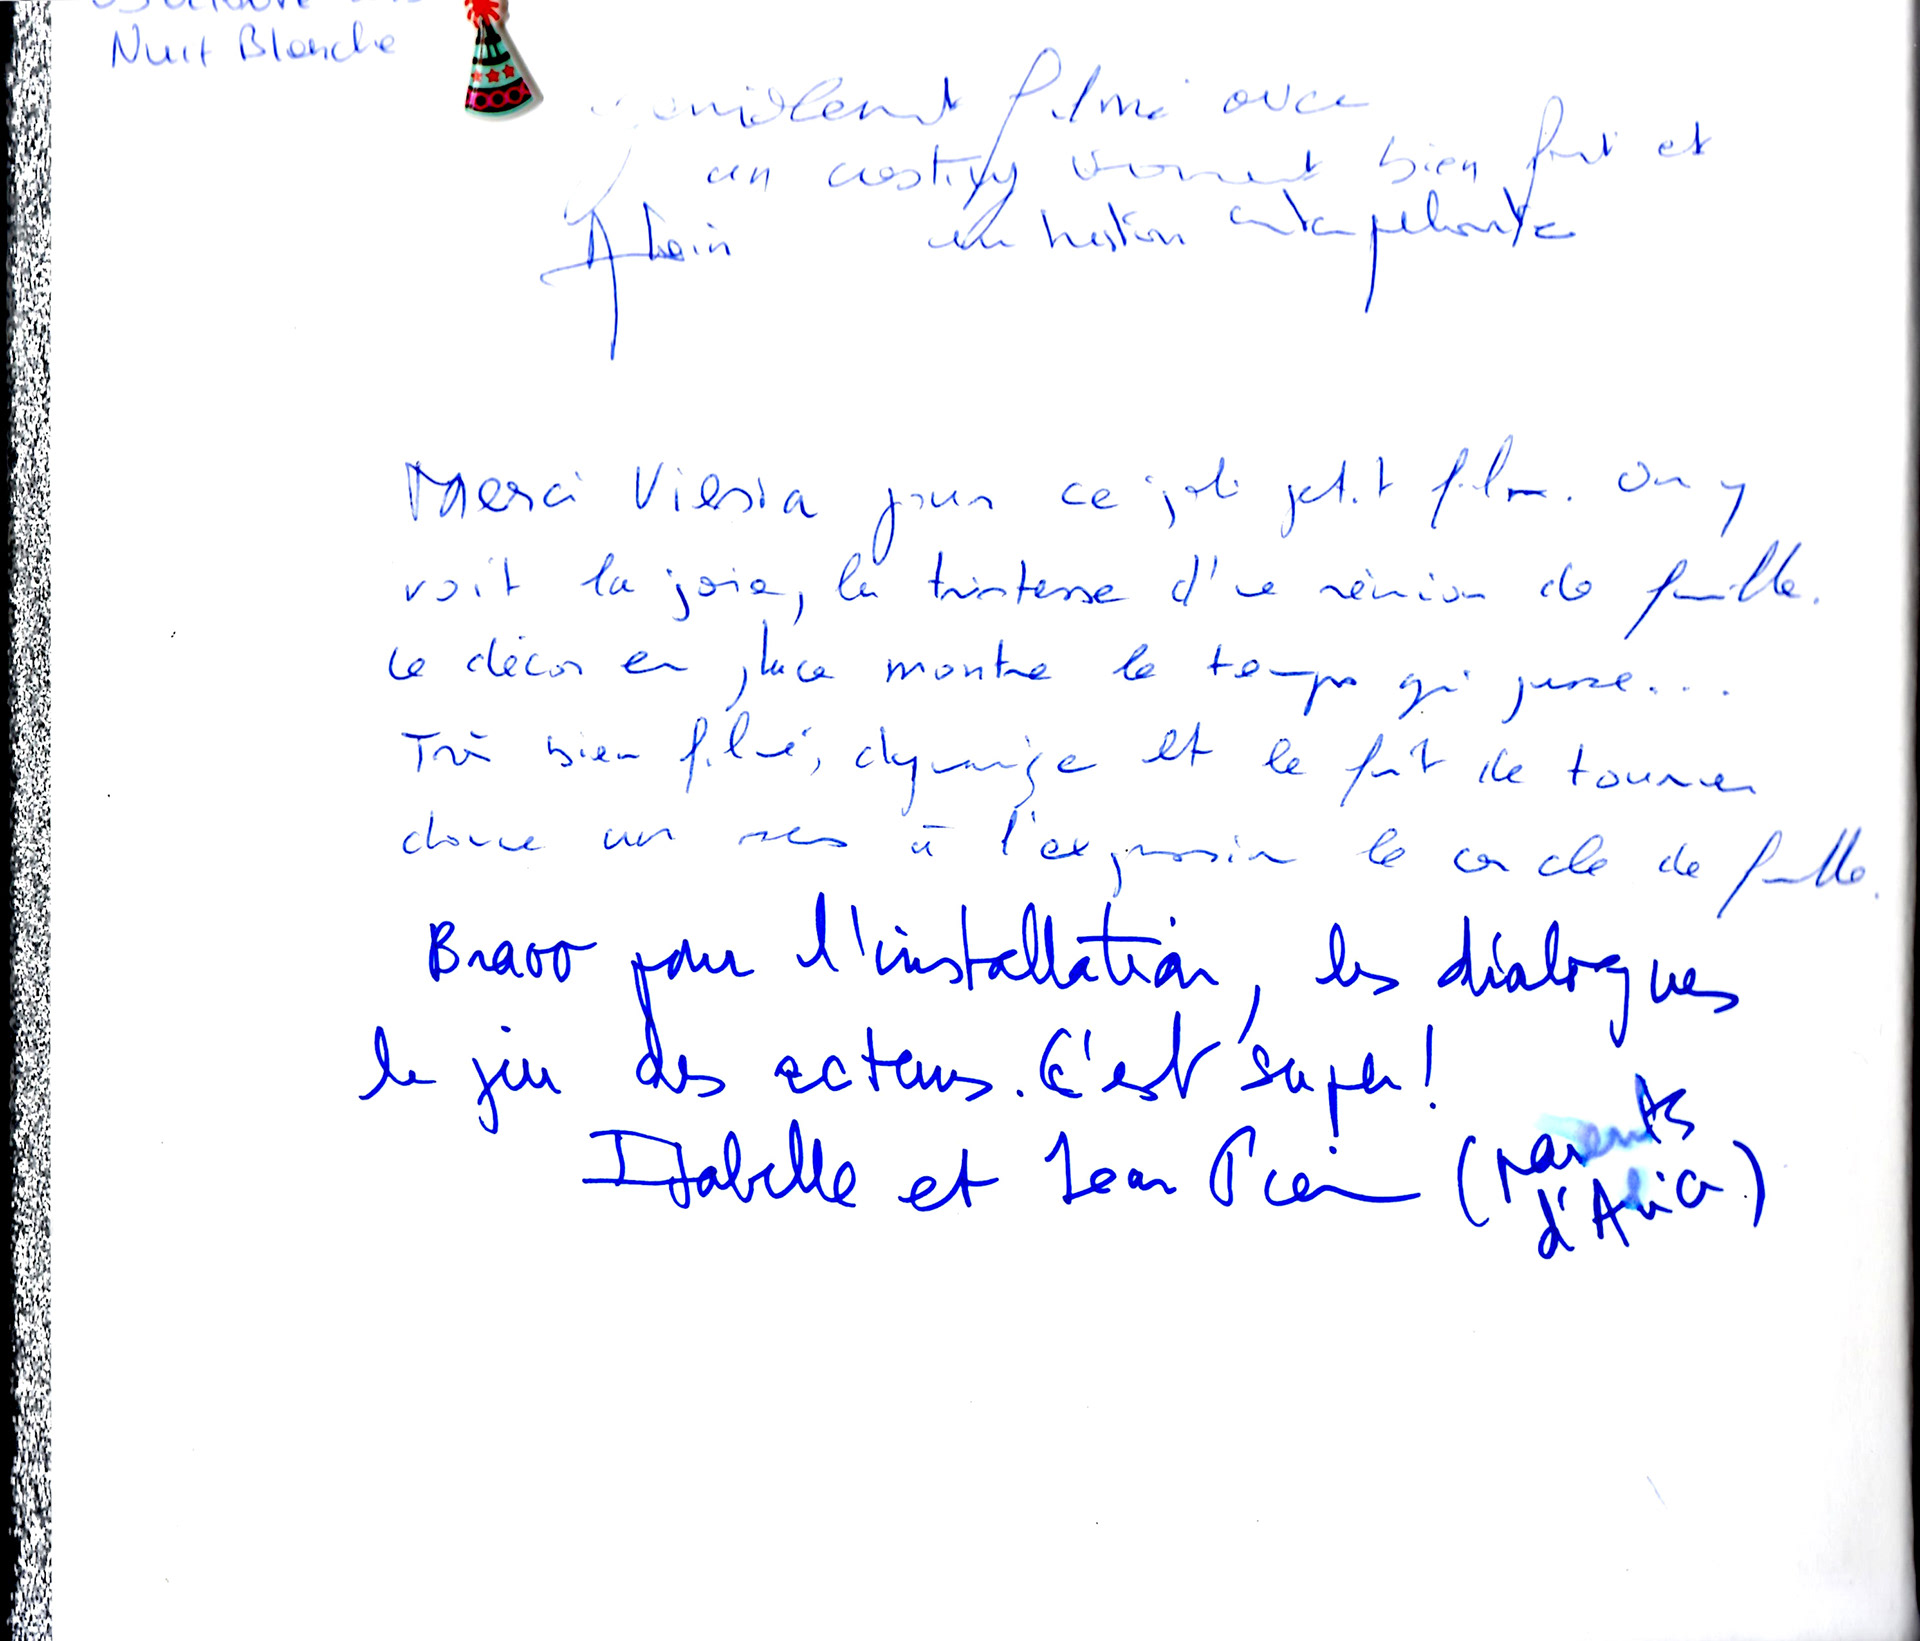 Nuit Blanche
filmé avec
un casting vraiment bien fait et
Alain
Merci Viersia pour ce joli petit film. On y
voit la joie, la tristesse d'une réunion de famille.
Le décor en place montre le temps qui passe...
Très bien filmé, dynamique et le fait de tourner
donne un sens à l'expression le cercle de famille.
Bravo pour l'installation, les dialogues
le jeu des acteurs. C'est super!
Isabelle et Jean Pierre (parents
d'Alicia)